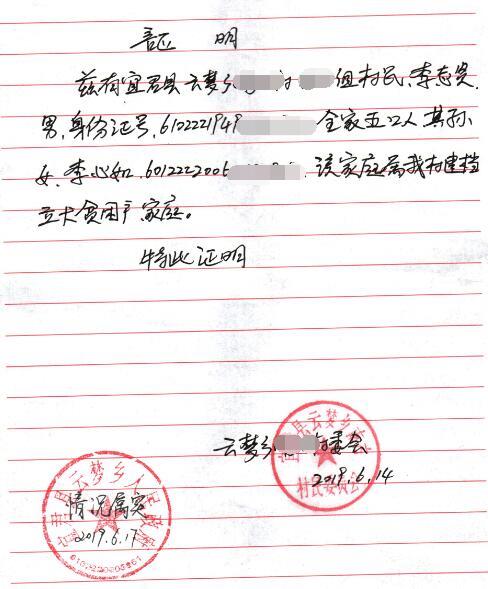 证 明
兹有宜君县云梦乡 村 组村民,李志贤,
男,身份证号,6102221949 全家五口人 其孙
女,李心如,601222200 ,该家庭属我村建档
立卡贫困户家庭。
特此证明
云梦乡 村委会
2019.6.14
宜君县云梦乡
村民委员会
宜君县云梦乡人民政府
情况属实
2019.6.17